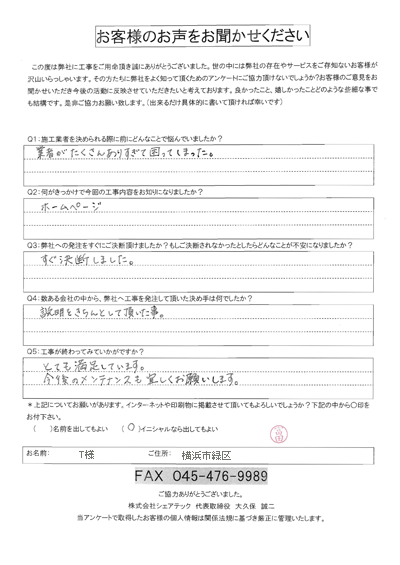 お客様のお声をお聞かせください
この度は弊社に工事をご用命頂き誠にありがとうございました。世の中には弊社の存在やサービスをご存知ないお客様が
沢山いらっしゃいます。その方たちに弊社をよく知って頂くためのアンケートにご協力頂けないでしょうか?お客様のご意見をお
聞かせいただき今後の活動に反映させていただきたいと考えております。良かったこと、嬉しかったことどのような些細な事で
も結構です。是非ご協力お願い致します。(出来るだけ具体的に書いて頂ければ幸いです)
Q1:施工業者を決められる際に前にどんなことで悩んでいましたか?
業者がたくさんありすぎて困ってしまった。
Q2:何がきっかけで今回の工事内容をお知りになりましたか?
ホームページ
Q3:弊社への発注をすぐにご決断頂けましたか?もしご決断されなかったとしたらどんなことが不安になりましたか?
すぐ決断しました。
Q4:数ある会社の中から、弊社へ工事を発注して頂いた決め手は何でしたか?
説明をきちんとして頂いた事。
Q5:工事が終わってみていかがですか?
とても満足しています。
今後のメンテナンスも宜しくお願いします。
*上記についてお願いがあります。インターネットや印刷物に掲載させて頂いてもよろしいでしょうか?下記の中から〇印を
お付下さい。
( )名前を出してもよい (〇)イニシャルなら出してもよい
お名前: T様 ご住所: 横浜市緑区
FAX 045-476-9989
ご協力ありがとうございました。
株式会社シェアテック 代表取締役 大久保 誠二
当アンケートで取得したお客様の個人情報は関係法規に基づき厳正に管理いたします。